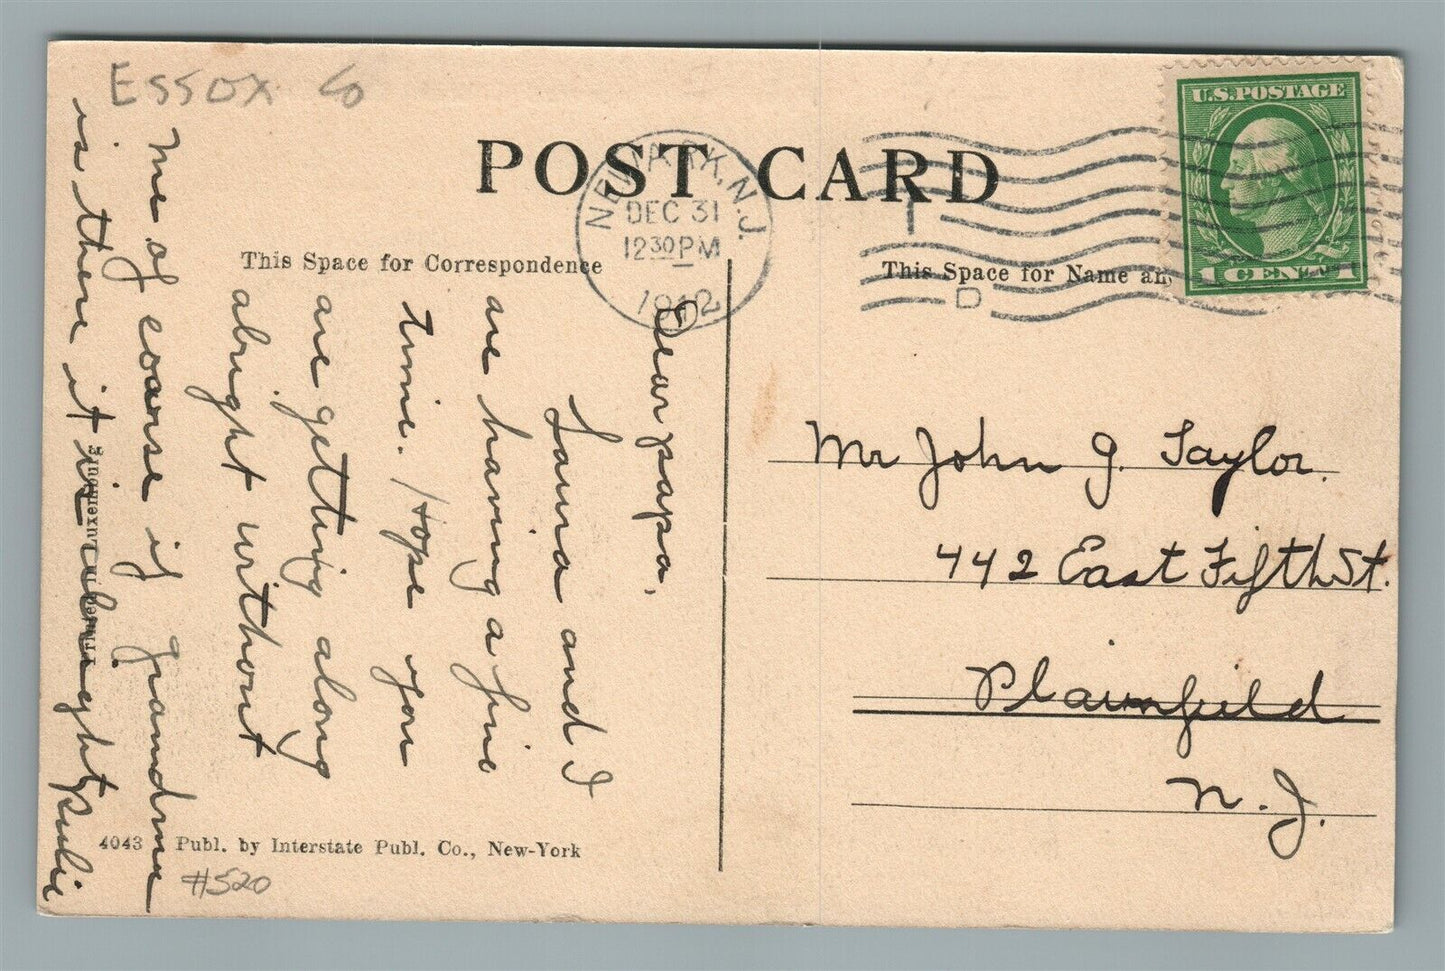 Essox Co
POST CARD
NEWARK, N.J.
DEC 31
12 30 PM
1912
D
U.S. POSTAGE
1 CENT 1
This Space for Correspondence
This Space for Name an
Dear papa.
and I
are having a fine
time. Hope you
are getting along
alright without
me of coarse if grandma
is there it is alright
Mr John J. Taylor.
442 East Fifth St.
Plainfield
N. J.
Printed in Luxembourg
4043 Publ. by Interstate Publ. Co., New-York
#520